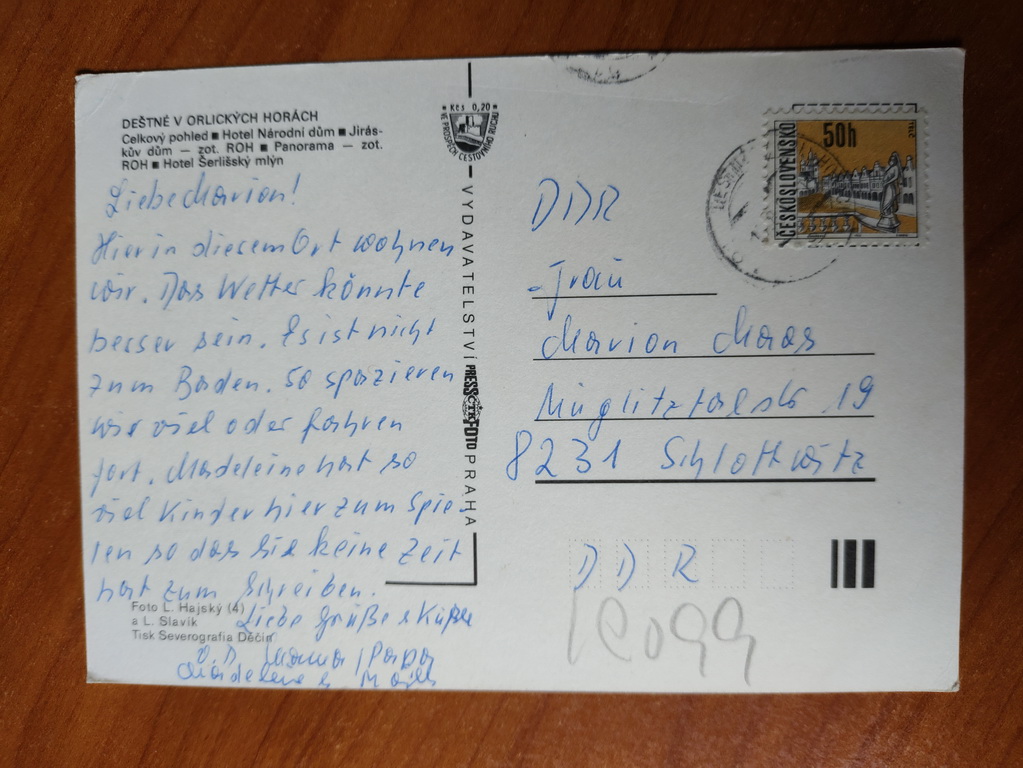 DEŠTNÉ V ORLICKÝCH HORÁCH
Celkový pohled ■ Hotel Národní dům ■ Jirás-
kův dům — zot. ROH ■ Panorama — zot.
ROH ■ Hotel Šerlišský mlýn
Liebe Marion!
Hier in diesem Ort wohnen
wir. Das Wetter könnte
besser sein. Es ist nicht
zum Baden. So spazieren
wir viel oder fahren
fort. Madeleine hat so
viel Kinder hier zum Spie-
len so das sie keine Zeit
hat zum Schreiben.
Liebe Grüße & Küße
Mama / Papa
Madeleine &
Foto L. Hajský (4)
a L. Slavík
Tisk Severografia Děčín
Kčs 0,20
VE PROSPĚCH CESTOVNÍHO RUCHU
VYDAVATELSTVÍ PRESSFOTO PRAHA
ČTK
50h
ČESKOSLOVENSKO
DDR
Frau
Marion Maas
Müglitztalstr 19
8231 Schlottwitz
DDR